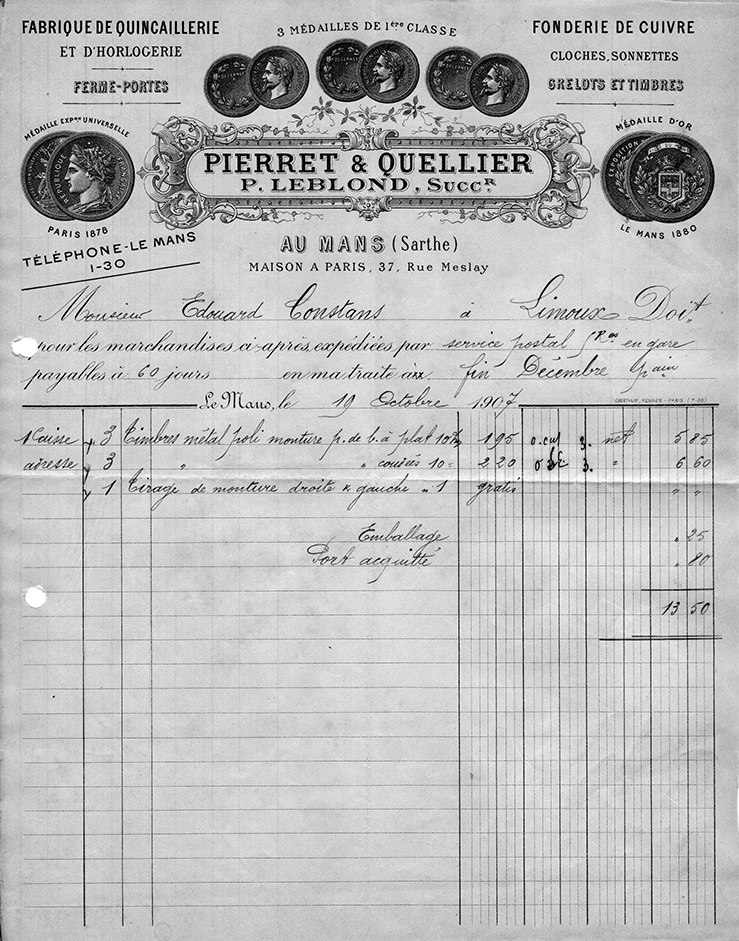 FABRIQUE DE QUINCAILLERIE
ET D'HORLOGERIE
FERME-PORTES
3 MÉDAILLES DE 1ère CLASSE
FONDERIE DE CUIVRE
CLOCHES, SONNETTES
GRELOTS ET TIMBRES
MÉDAILLE EXPon UNIVERSELLE
PARIS 1878
PIERRET & QUELLIER
P. LEBLOND, SUCCR
MÉDAILLE D'OR
LE MANS 1880
TÉLÉPHONE-LE MANS
1-30
AU MANS (Sarthe)
MAISON A PARIS, 37, Rue Meslay
Monsieur Edouard Constans à Limoux Doit
pour les marchandises ci-après, expédiées par service postal en gare
payables à 60 jours en ma traite fin Décembre
Le Mans, le 19 Octobre 1907
OBERTHUR, RENNES-PARIS
1 Caisse 3 Timbres métal poli monture p. de b. à plat 10 1.95 3. net 5 85
adresse 3 " " coudés 10 = 2.20 3. " 6 60
1 Tirage de monture droite & gauche " 1 gratis " "
Emballage " 25
Port acquitté " 80
13 50